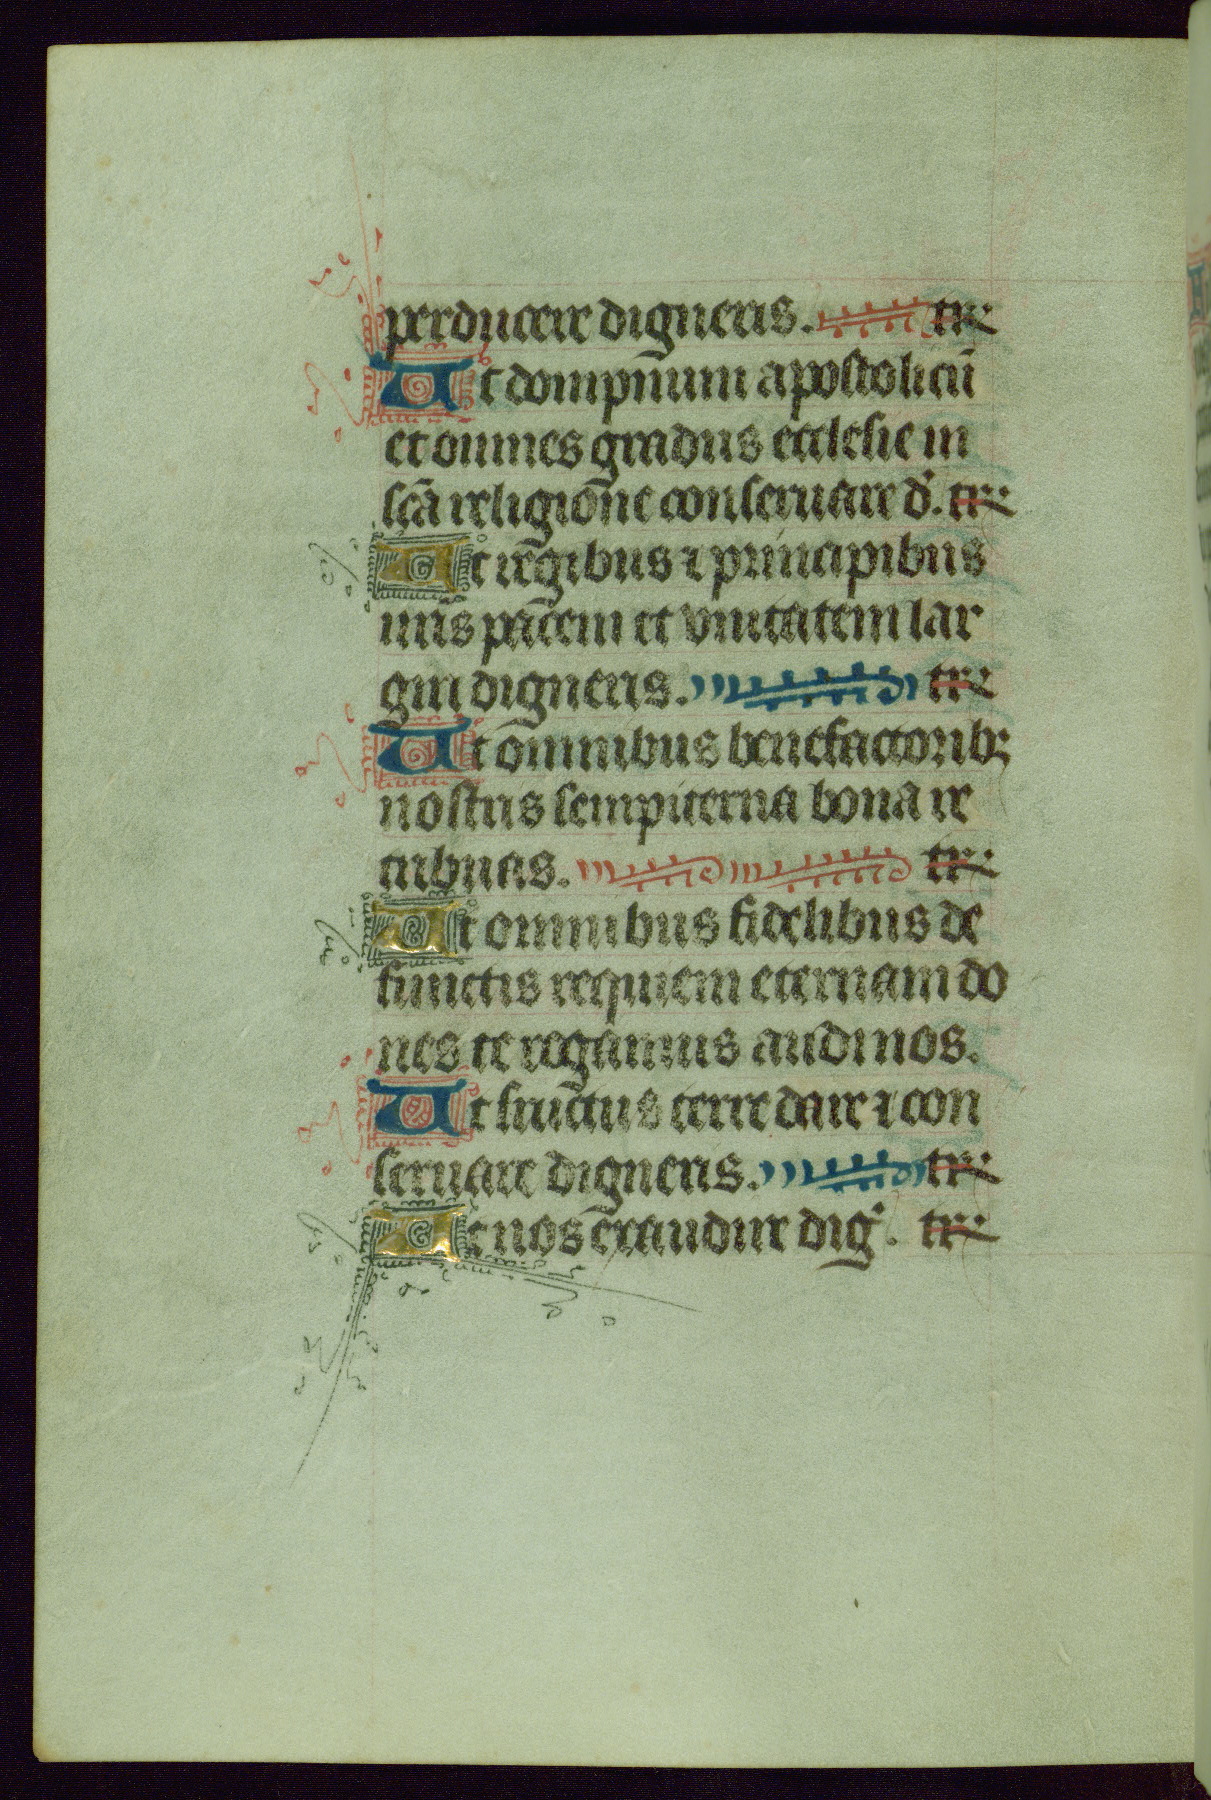 perducere digneris. te
Ut dompn̄um apostolicū
et omnes gradus ecclesie in
sc̄a religiōne conseruare d̕. te
Et regibus ⁊ principibus
nr̄is pacem et vnitatem lar
giri digneris. te
Ut omnibus benefactorib;
nostris sempiterna bona re
tribuas. te
Ut omnibus fidelibus de
functis requiem eternam do
nes te rogamus audi nos.
Ut fructus terre dare ⁊ con
seruare digneris. te
Ut nos exaudire dig̕. te